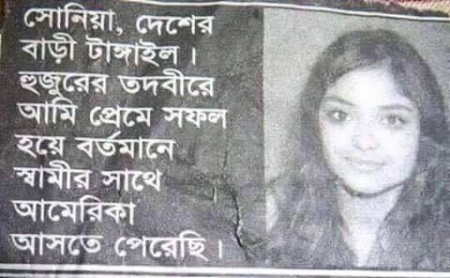 সোনিয়া, দেশের
বাড়ী টাঙ্গাইল।
হুজুরের তদবীরে
আমি প্রেমে সফল
হয়ে বর্তমানে
স্বামীর সাথে
আমেরিকা
আসতে পেরেছি।